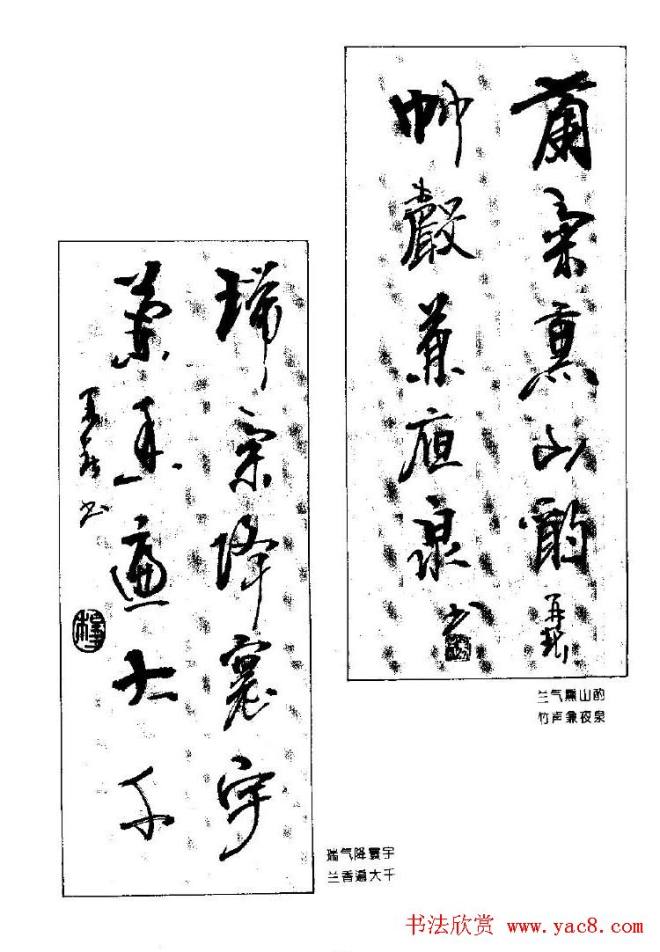 蘭氣熏山酌
竹聲兼夜泉
书
兰气熏山酌
竹声兼夜泉
瑞氣降寰宇
蘭香遍大千
书
瑞气降寰宇
兰香遍大千
书法欣赏 www.yac8.com